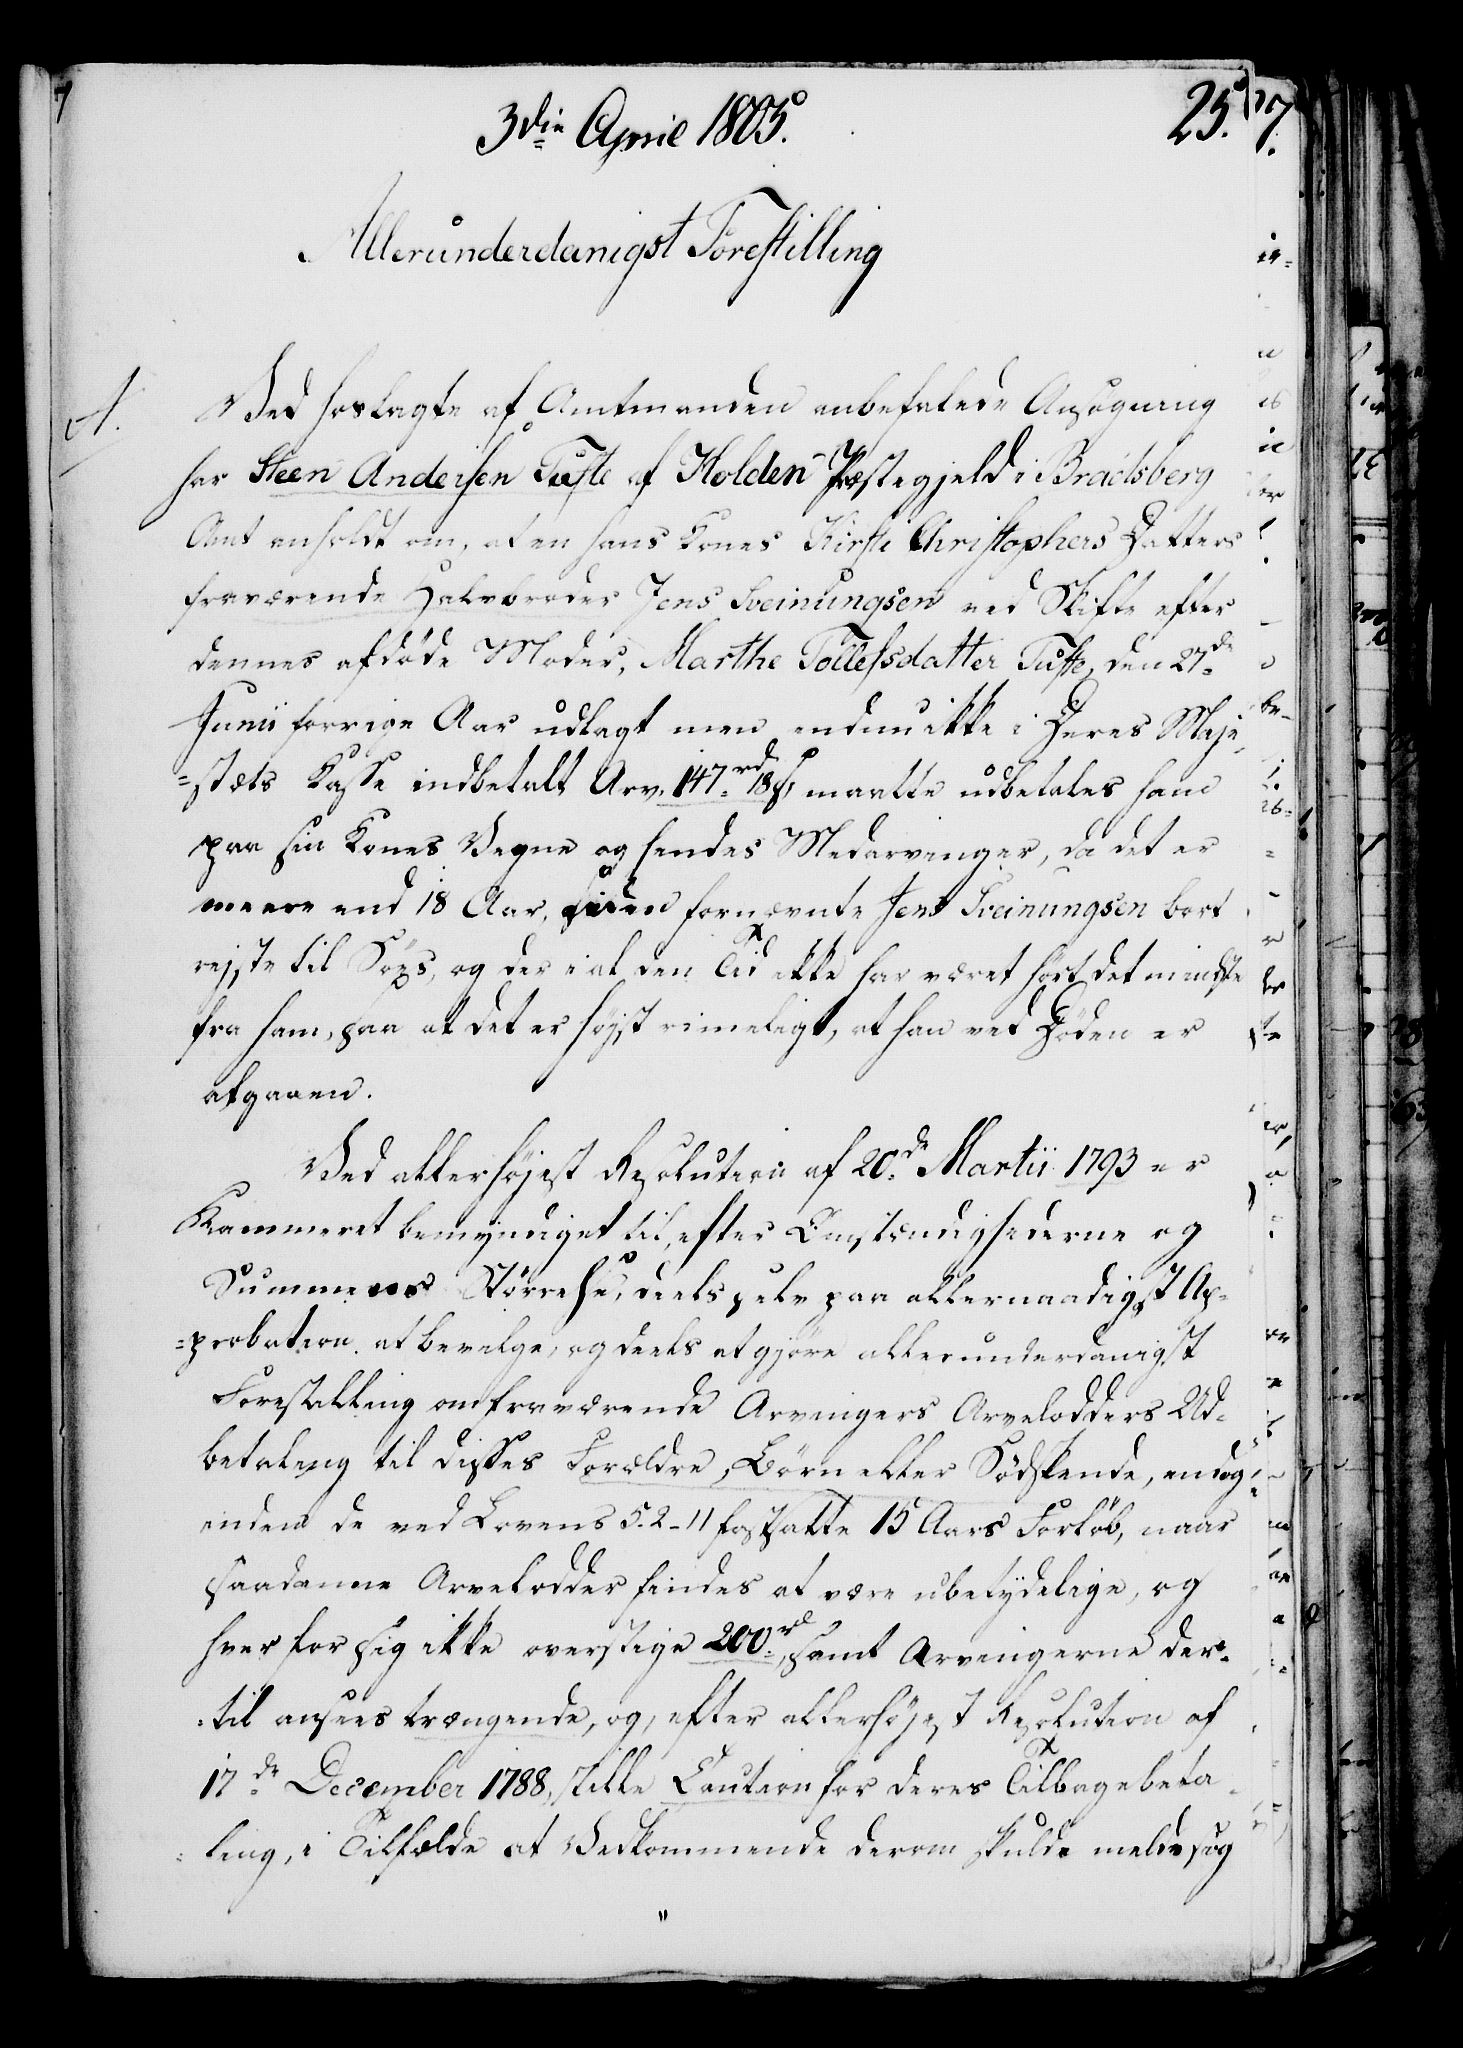 3die April 1805.
25.
Allerunderdanigst Forestilling
A.
Ved hoslagte af Amtmanden anbefalede Ansøgning
har Steen Andersen Tufte af Holden Præstegjeld i Bradsberg
Amt anholdt om, at en hans Kones Kirsti Christophers Datters
fraværende Halvbroder Jens Sveinungsen ved Skifte efter
dennes afdøde Moder, Marthe Tollefsdatter Tufte, den 27de
Junii forrige Aar udlagt men endnu ikke i Deres Maje-
=stæts Kasse indbetalt Arv, 147 rd 18 s, maatte udbetales ham
paa sin Kones Vegne og hendes Medarvinger, da det er
meere end 18 Aar, siden fornævnte Jens Sveinungsen bort
rejste til Søes, og der i al den Tid ikke har været hørt det mindste
fra ham, saa at det er højst rimeligt, at han ved Døden er
afgaaen.
Ved allerhøjest Resolution af 20de Martii 1793 er
Kammeret bemyndiget til, efter Omstændighederne og
Summens Størrelse, deels selv paa allernaadigst Ap-
=probation at bevilge, og deels at gjøre allerunderdanigst
Forestilling om fraværende Arvingers Arvelodders Ud-
betaling til disses Forældre, Børn eller Sødskende, endog
inden de ved Lovens 5-2-11 fastsatte 15 Aars Forløb, naar
saadanne Arvelodder findes at være ubetydelige, og
hver for sig ikke overstige 200 rd, samt Arvingerne der-
=til ansees trængende, og, efter allerhøjest Resolution af
17de December 1788, stille Caution for deres Tilbagebeta-
=ling, i Tilfælde at Vedkommende derom skulde melde sig
"